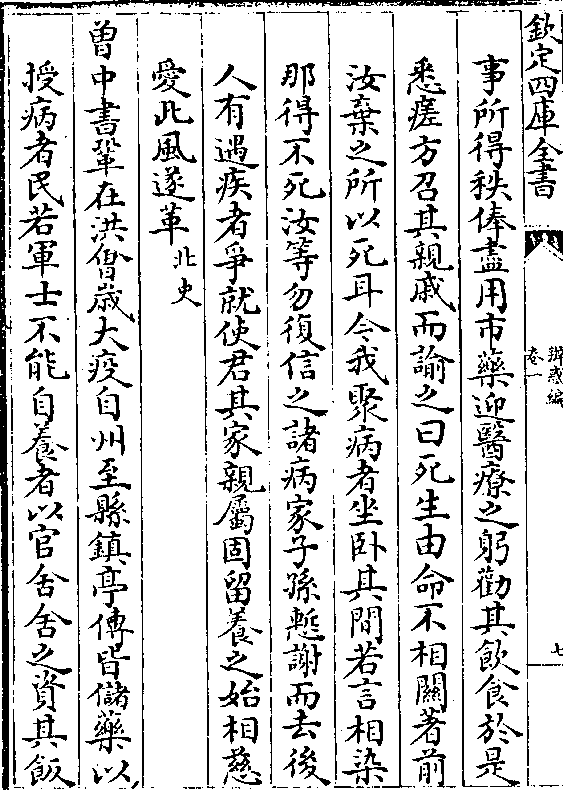 欽定四庫全書
辨惑編
卷一
七
事所得秩俸盡用市藥迎醫療之躬勸其飲食於是
悉瘥方召其親戚而諭之曰死生由命不相關著前
汝棄之所以死耳今我聚病者坐卧其間若言相染
那得不死汝等勿復信之諸病家子孫慙謝而去後
人有遇疾者爭就使君其家親屬固留養之始相慈
愛此風遂革北史
曾中書鞏在洪會歲大疫自州至縣鎮亭傳皆儲藥以
授病者民若軍士不能自養者以官舍舍之資其飯